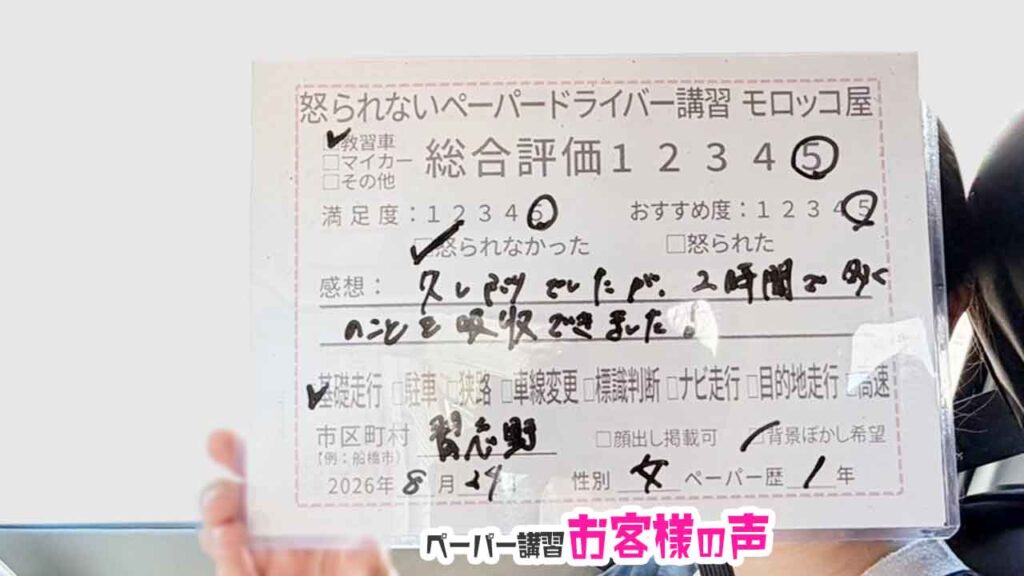 怒られないペーパードライバー講習 モロッコ屋
教習車
□マイカー
□その他
総合評価 1 2 3 4 5
満足度：1 2 3 4 5 おすすめ度：1 2 3 4 5
□怒られなかった □怒られた
感想： 久しぶりでしたが、2時間で多く
のことを吸収できました！
基礎走行 □駐車 □狭路 □車線変更 □標識判断 □ナビ走行 □目的地走行 □高速
市区町村 習志野 □顔出し掲載可 □背景ぼかし希望
【例：船橋市】
2026年 8 月 24 性別 女 ペーパー歴 1 年
ペーパー講習 お客様の声